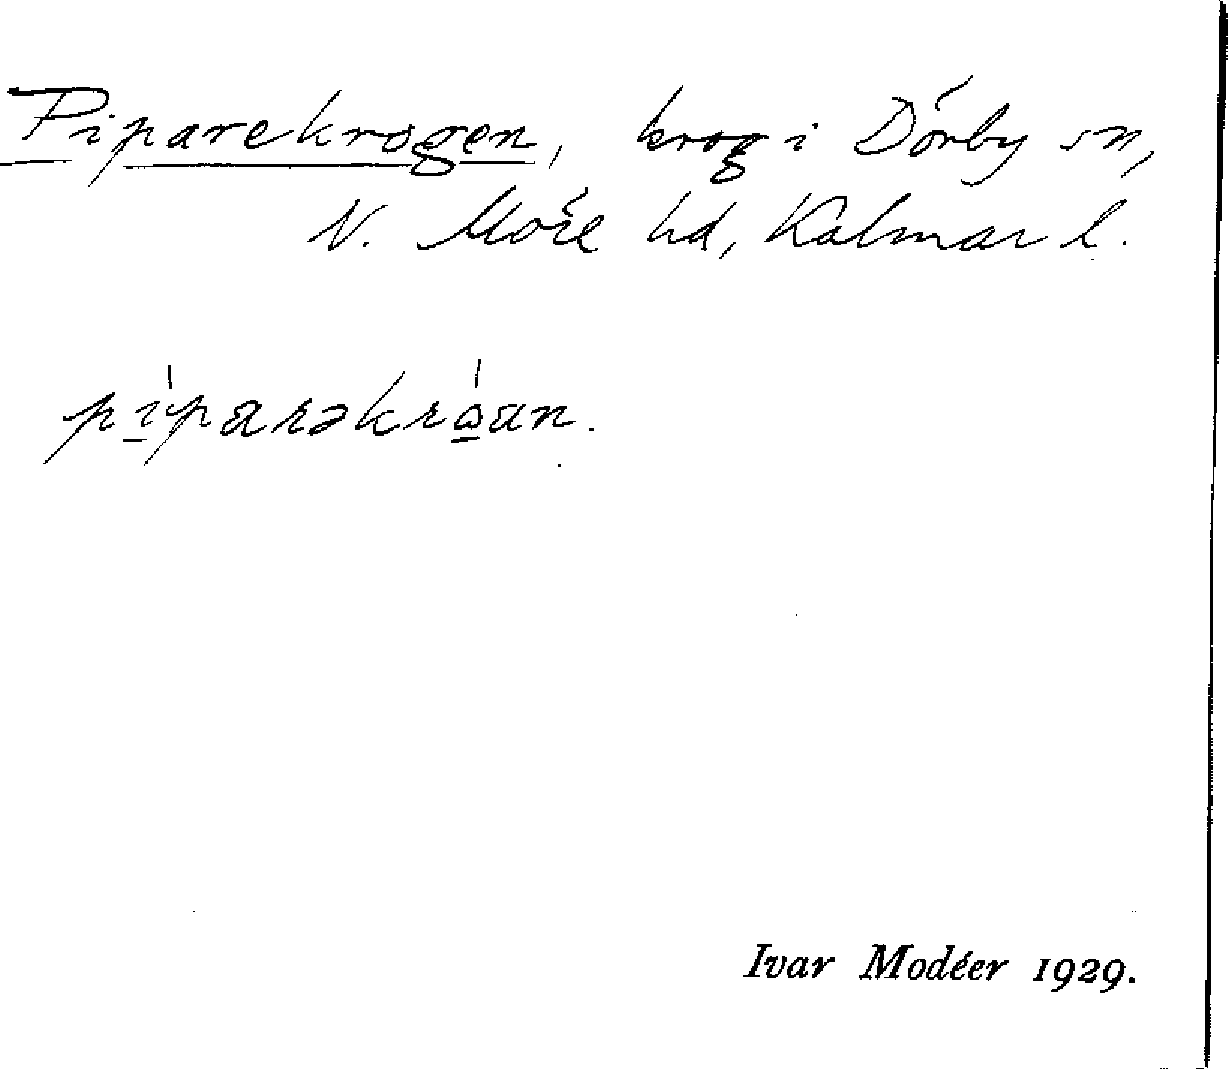 Piparekrogen, krog i Dörby sn,
N. Möre hd, Kalmar l.
pi̱ˈparəkrω̱ˈan.
Ivar Modéer 1929.